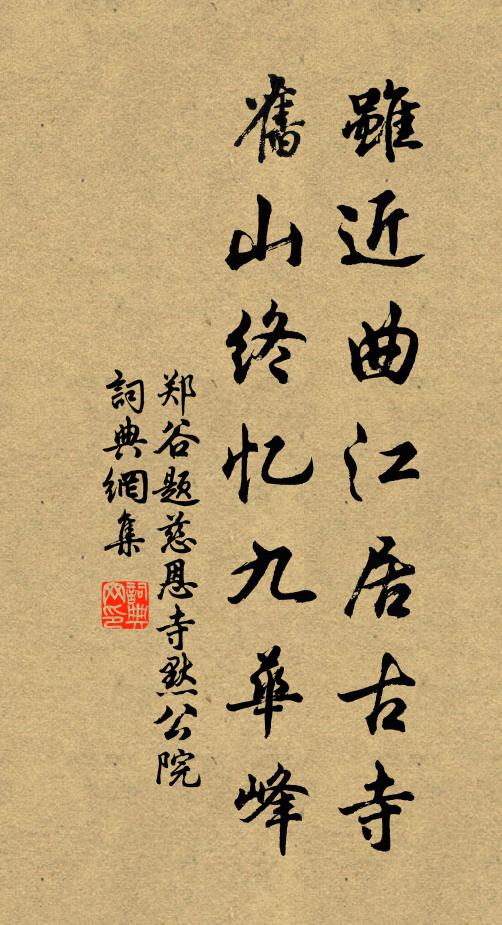 雖近曲江居古寺
舊山终忆九華峰
郑谷题慈恩寺默公院
詞典網集
詞典網印